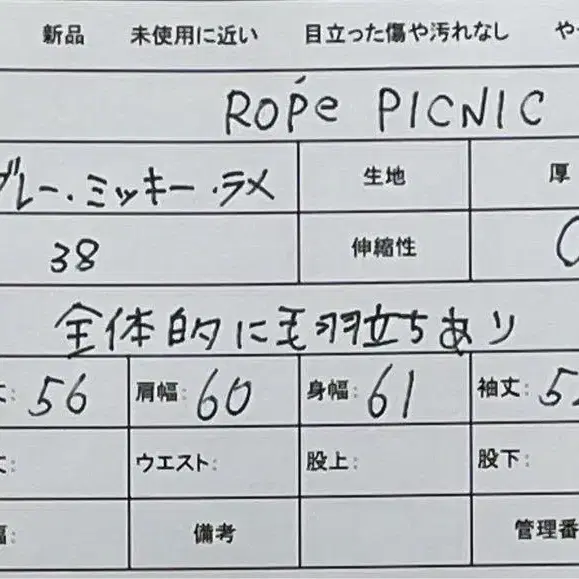 新品 未使用に近い 目立った傷や汚れなし や
ROPÉ PICNIC
グレー・ミッキー・ラメ 生地 厚
38 伸縮性
全体的に毛羽立ちあり
丈: 56 肩幅: 60 身幅: 61 袖丈: 5
ウエスト: 股上: 股下:
備考 管理番